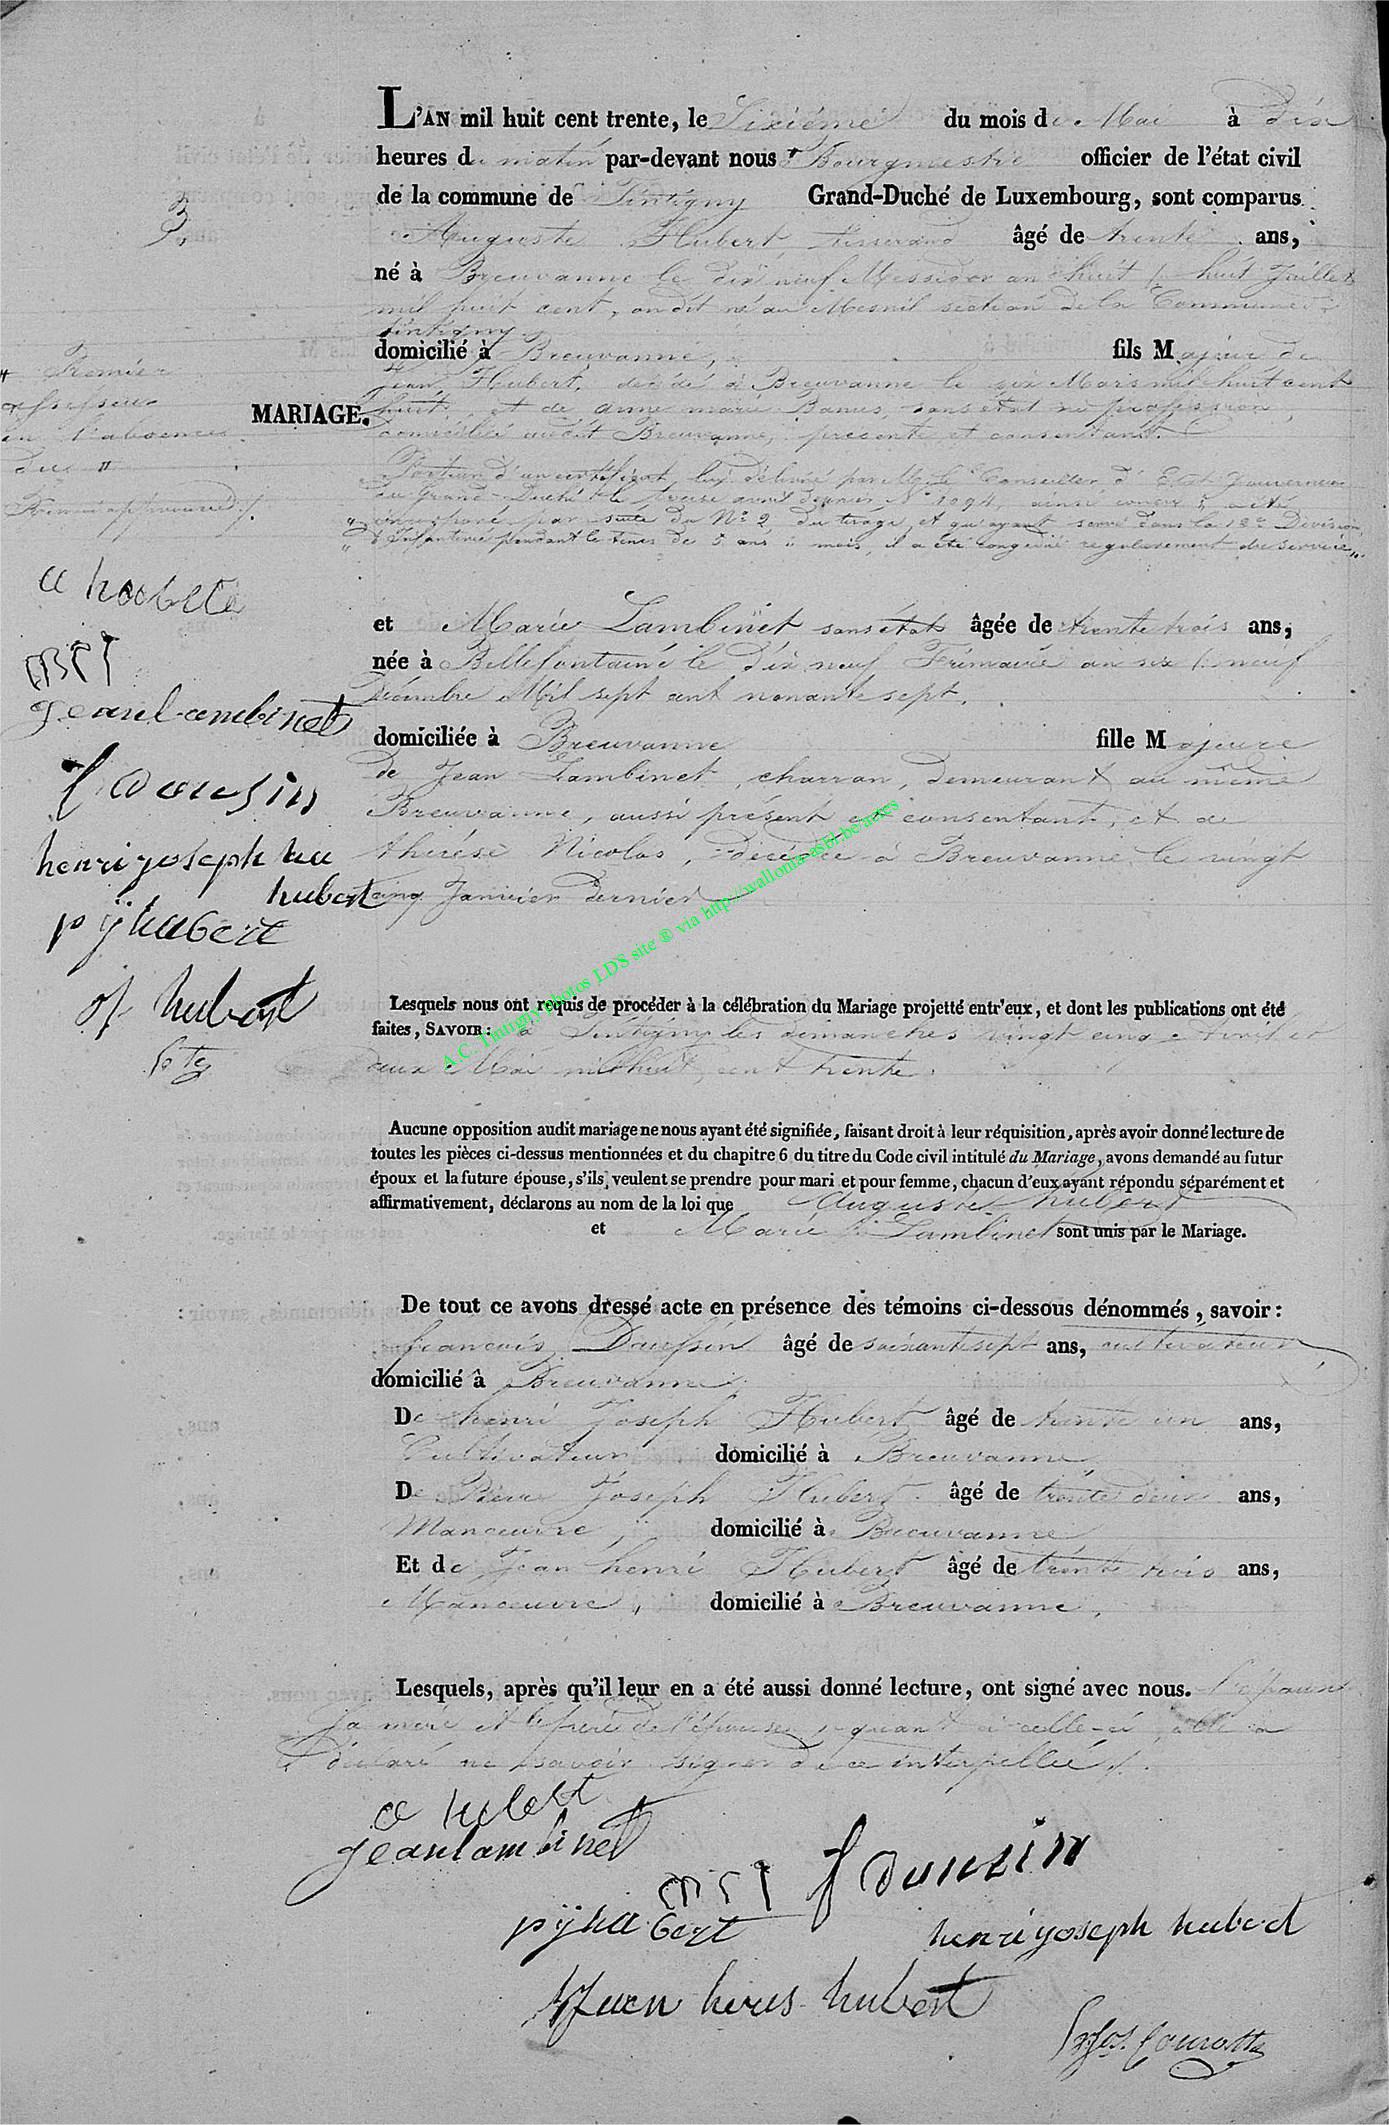 L'AN mil huit cent trente, le Sixième du mois de Mai à dix
heures du matin par-devant nous Bourgmestre officier de l'état civil
de la commune de Tintigny Grand-Duché de Luxembourg, sont comparus
3.
Auguste Hubert tisserand âgé de trente ans,
né à Breuvanne le dix neuf Messidor an huit / huit Juillet
mil huit cent, ondit né au Mesnil section de la Commune de
tintigny
domicilié à Breuvanne, fils Majeur de
Jean Hubert, décédé à Breuvanne le six Mars mil huit cent
MARIAGE.
huit, et de anne marie Banus, sans état ni profession,
domiciliée audit Breuvanne, présente et consentant.
Premier
assesseur
en l'absence
du
Porteur d'un certificat lui délivré par Mr le Conseiller d'Etat Gouverneur
du Grand-Duché le avril dernier No 1094, ainsi conçu
incorporé par suite du No 2 du tirage et qu'ayant servi dans la 18e Division
d'Infanterie pendant le tems de 5 ans mois, il a été congédié régulièrement du service
a hubert
jean lambinet
f dausin
henri joseph hu
hubert
p j hubert
hubert
et Marie Lambinet sans état âgée de trente trois ans,
née à Bellefontaine le dix neuf Frimaire an six / neuf
décembre Mil sept cent nonante sept.
domiciliée à Breuvanne fille Majeure
de Jean Lambinet, charron, demeurant au même
Breuvanne, aussi présent et consentant, et de
thérèse Nicolas, décédée à Breuvanne le vingt
cinq Janvier dernier
A.C. Tintigny photos LDS site ® via http://wallonia-asbl.be/actes
Lesquels nous ont requis de procéder à la célébration du Mariage projetté entr'eux, et dont les publications ont été
faites, SAVOIR: à Tintigny les dimanches vingt cinq avril et
deux Mai mil huit cent trente.
Aucune opposition audit mariage ne nous ayant été signifiée, faisant droit à leur réquisition, après avoir donné lecture de
toutes les pièces ci-dessus mentionnées et du chapitre 6 du titre du Code civil intitulé du Mariage, avons demandé au futur
époux et la future épouse, s'ils veulent se prendre pour mari et pour femme, chacun d'eux ayant répondu séparément et
affirmativement, déclarons au nom de la loi que Auguste hubert
et Marie Lambinet sont unis par le Mariage.
De tout ce avons dressé acte en présence des témoins ci-dessous dénommés, savoir:
françois Daussin âgé de soixante sept ans, cultivateur
domicilié à Breuvanne
De henri Joseph Hubert âgé de trente un ans,
Cultivateur domicilié à Breuvanne
De Pierre Joseph Hubert âgé de trente deux ans,
Manœuvre, domicilié à Breuvanne
Et de Jean henri Hubert âgé de trente trois ans,
Manœuvre, domicilié à Breuvanne,
Lesquels, après qu'il leur en a été aussi donné lecture, ont signé avec nous. l'époux
sa mère et le père de l'épouse, quant à celle-ci, elle a
déclaré ne savoir signer de ce interpellée /.
a hubert
jean lambinet
f dausin
p j hubert
henri joseph hubert
hubert